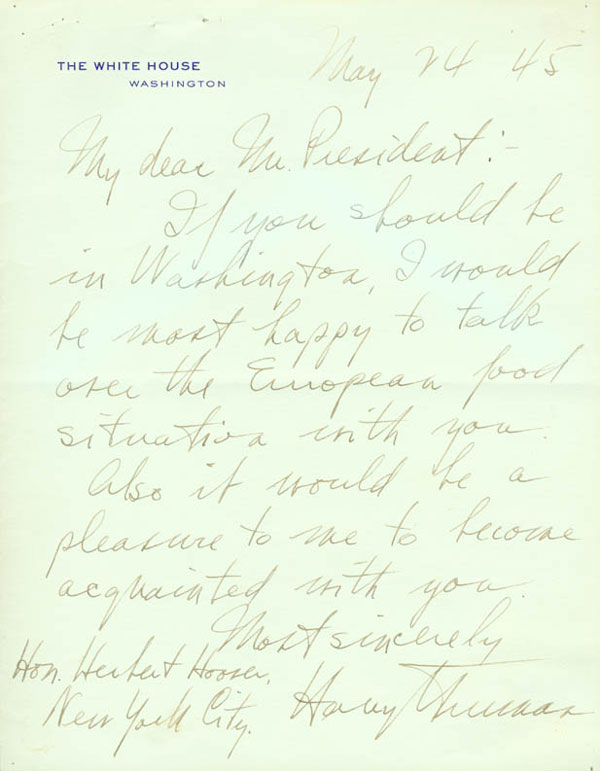 THE WHITE HOUSE
WASHINGTON
May 24 '45
My dear Mr. President:-
If you should be
in Washington, I would
be most happy to talk
over the European food
situation with you.
Also it would be a
pleasure to me to become
acquainted with you.
Most sincerely
Harry Truman
Hon. Herbert Hoover,
New York City.